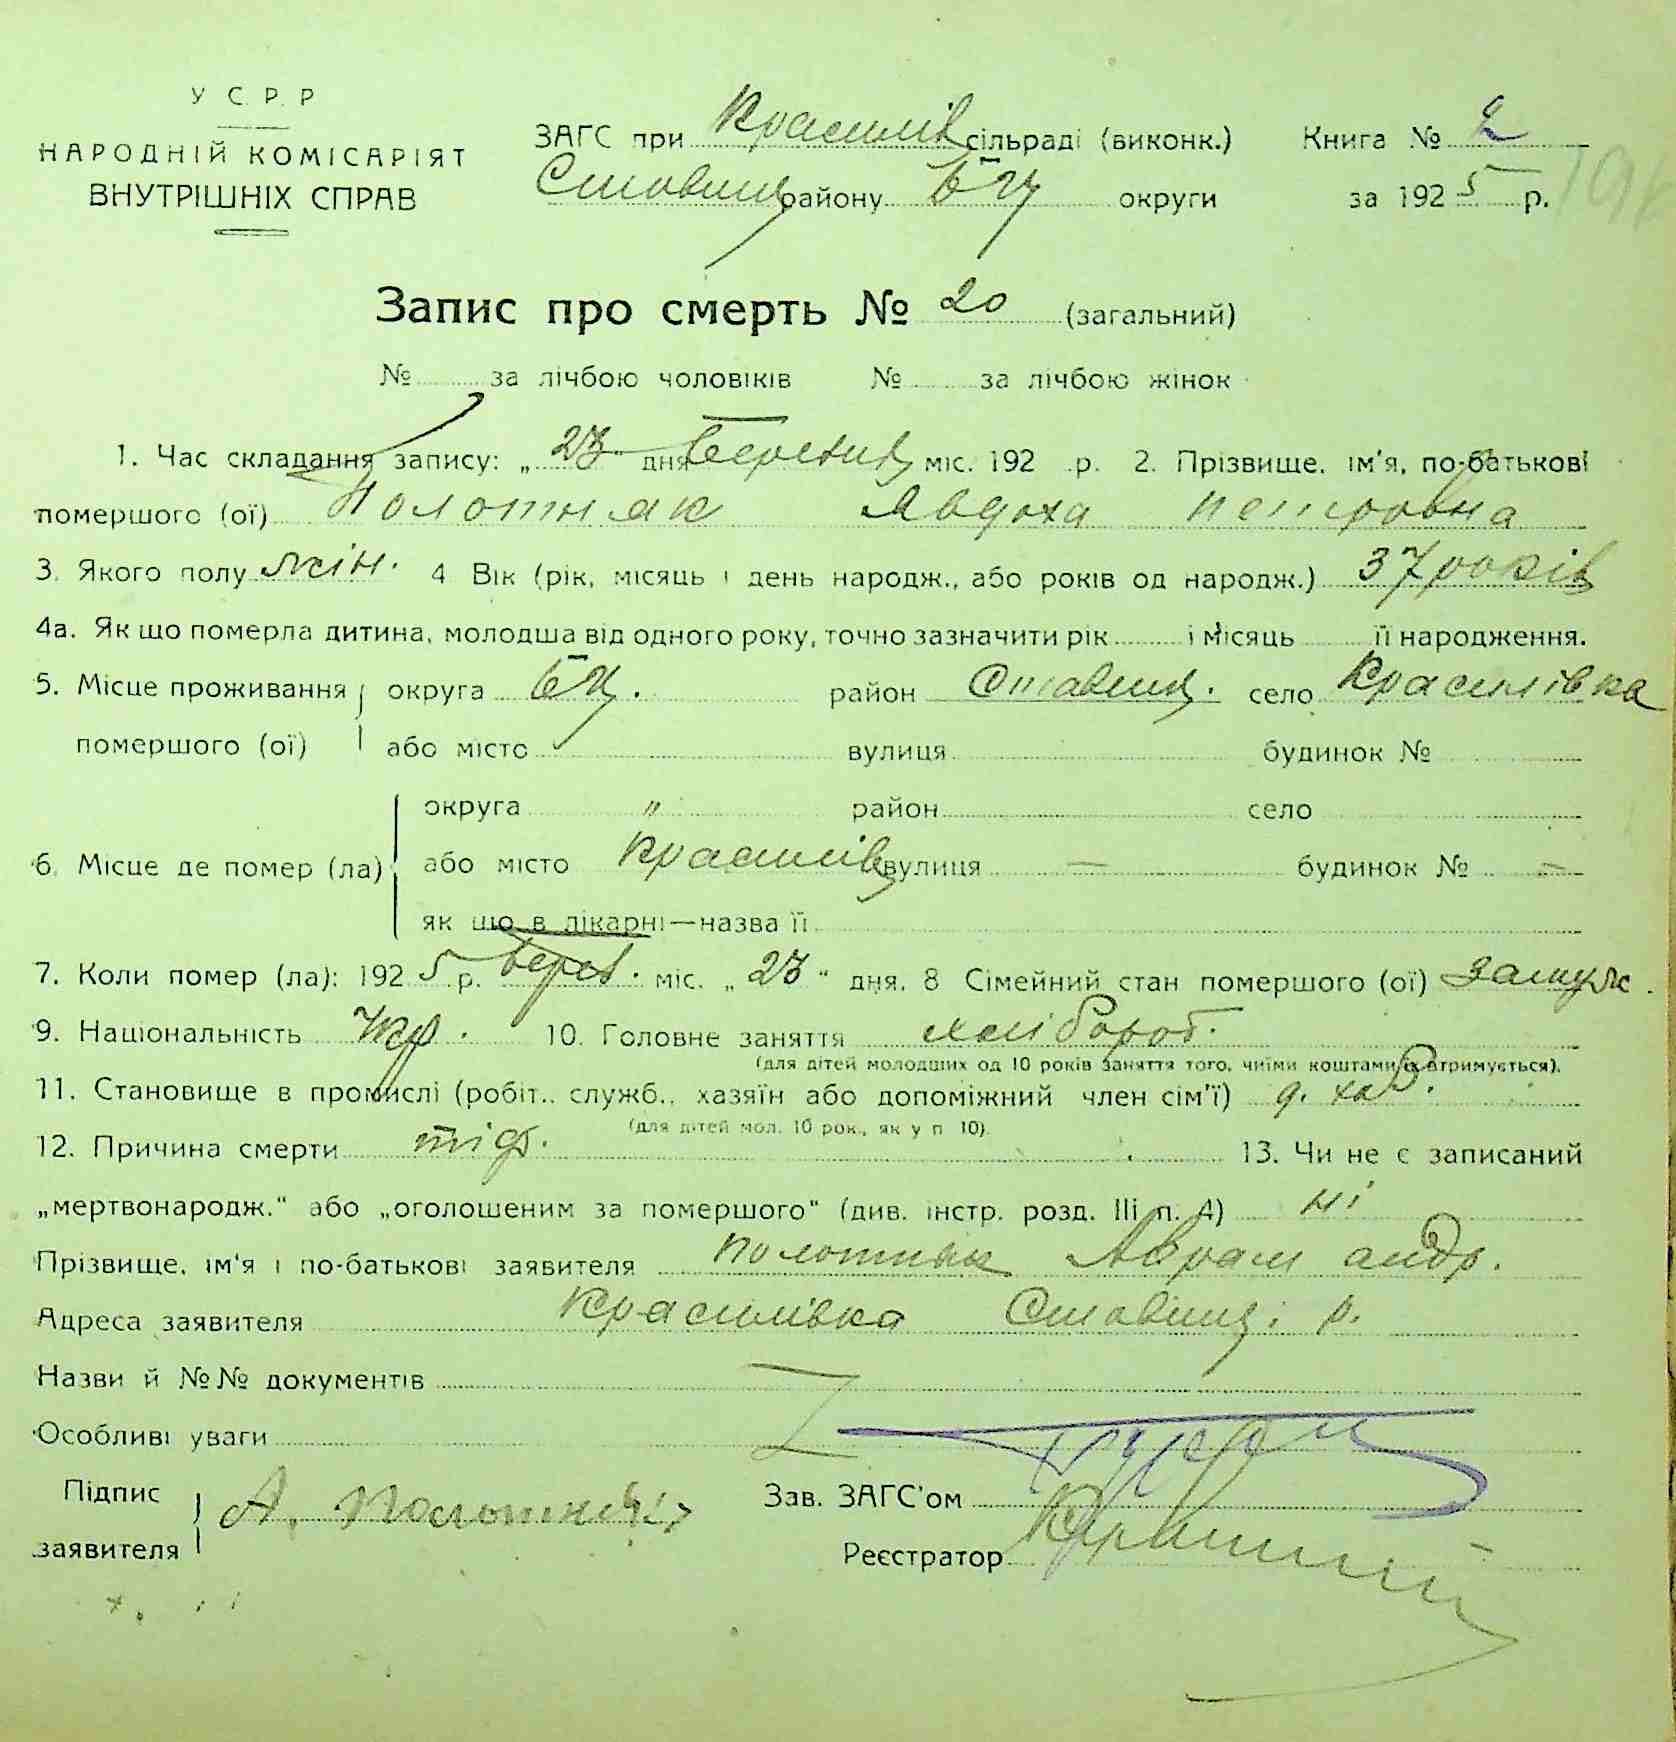 У С. Р. Р
НАРОДНІЙ КОМІСАРІЯТ
ВНУТРІШНІХ СПРАВ
ЗАГС при Красилів сільраді (виконк.) Книга №
Ставищ району БЦ округи за 1925 р.
Запис про смерть № 20 (загальний)
№ за лічбою чоловіків № за лічбою жінок
1. Час складання запису: „23" дня Березня міс. 192 р. 2. Прізвище, ім'я, по-батькові
помершого (ої) Полотняк Явдоха петровна
3. Якого полу жін. 4 Вік (рік, місяць і день народж., або років од народж.) 37 років
4а. Як що померла дитина, молодша від одного року, точно зазначити рік і місяць її народження.
5. Місце проживання округа БЦ. район Ставищ. село Красилівка
помершого (ої) або місто вулиця будинок №
округа " район село
6. Місце де помер (ла) або місто Красилів вулиця — будинок № —
як що в лікарні—назва її
7. Коли помер (ла): 1925 р. берез. міс. „23" дня. 8 Сімейний стан помершого (ої) замуж.
9. Національність Укр. 10. Головне заняття хлібороб.
(для дітей молодших од 10 років заняття того, чиїми коштами їх втримується).
11. Становище в промислі (робіт., служб., хазяїн або допоміжний член сім'ї) д. хаз.
(для дітей мол. 10 рок., як у п 10).
12. Причина смерти тіф. 13. Чи не є записаний
„мертвонародж." або „оголошеним за помершого" (див. інстр. розд. III п. 4) ні
Прізвище, ім'я і по-батькові заявителя полотняк Аврам андр.
Адреса заявителя Красилівка Ставищ. р.
Назви й №№ документів
Особливі уваги
Підпис А. Полотняк Зав. ЗАГС'ом
заявителя Реєстратор